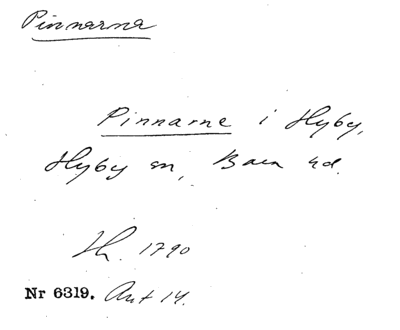 Pinnarna
Pinnarne i Hyby,
Hyby sn, Bara hd.
Hh. 1790
Nr 6319. Ant 14.